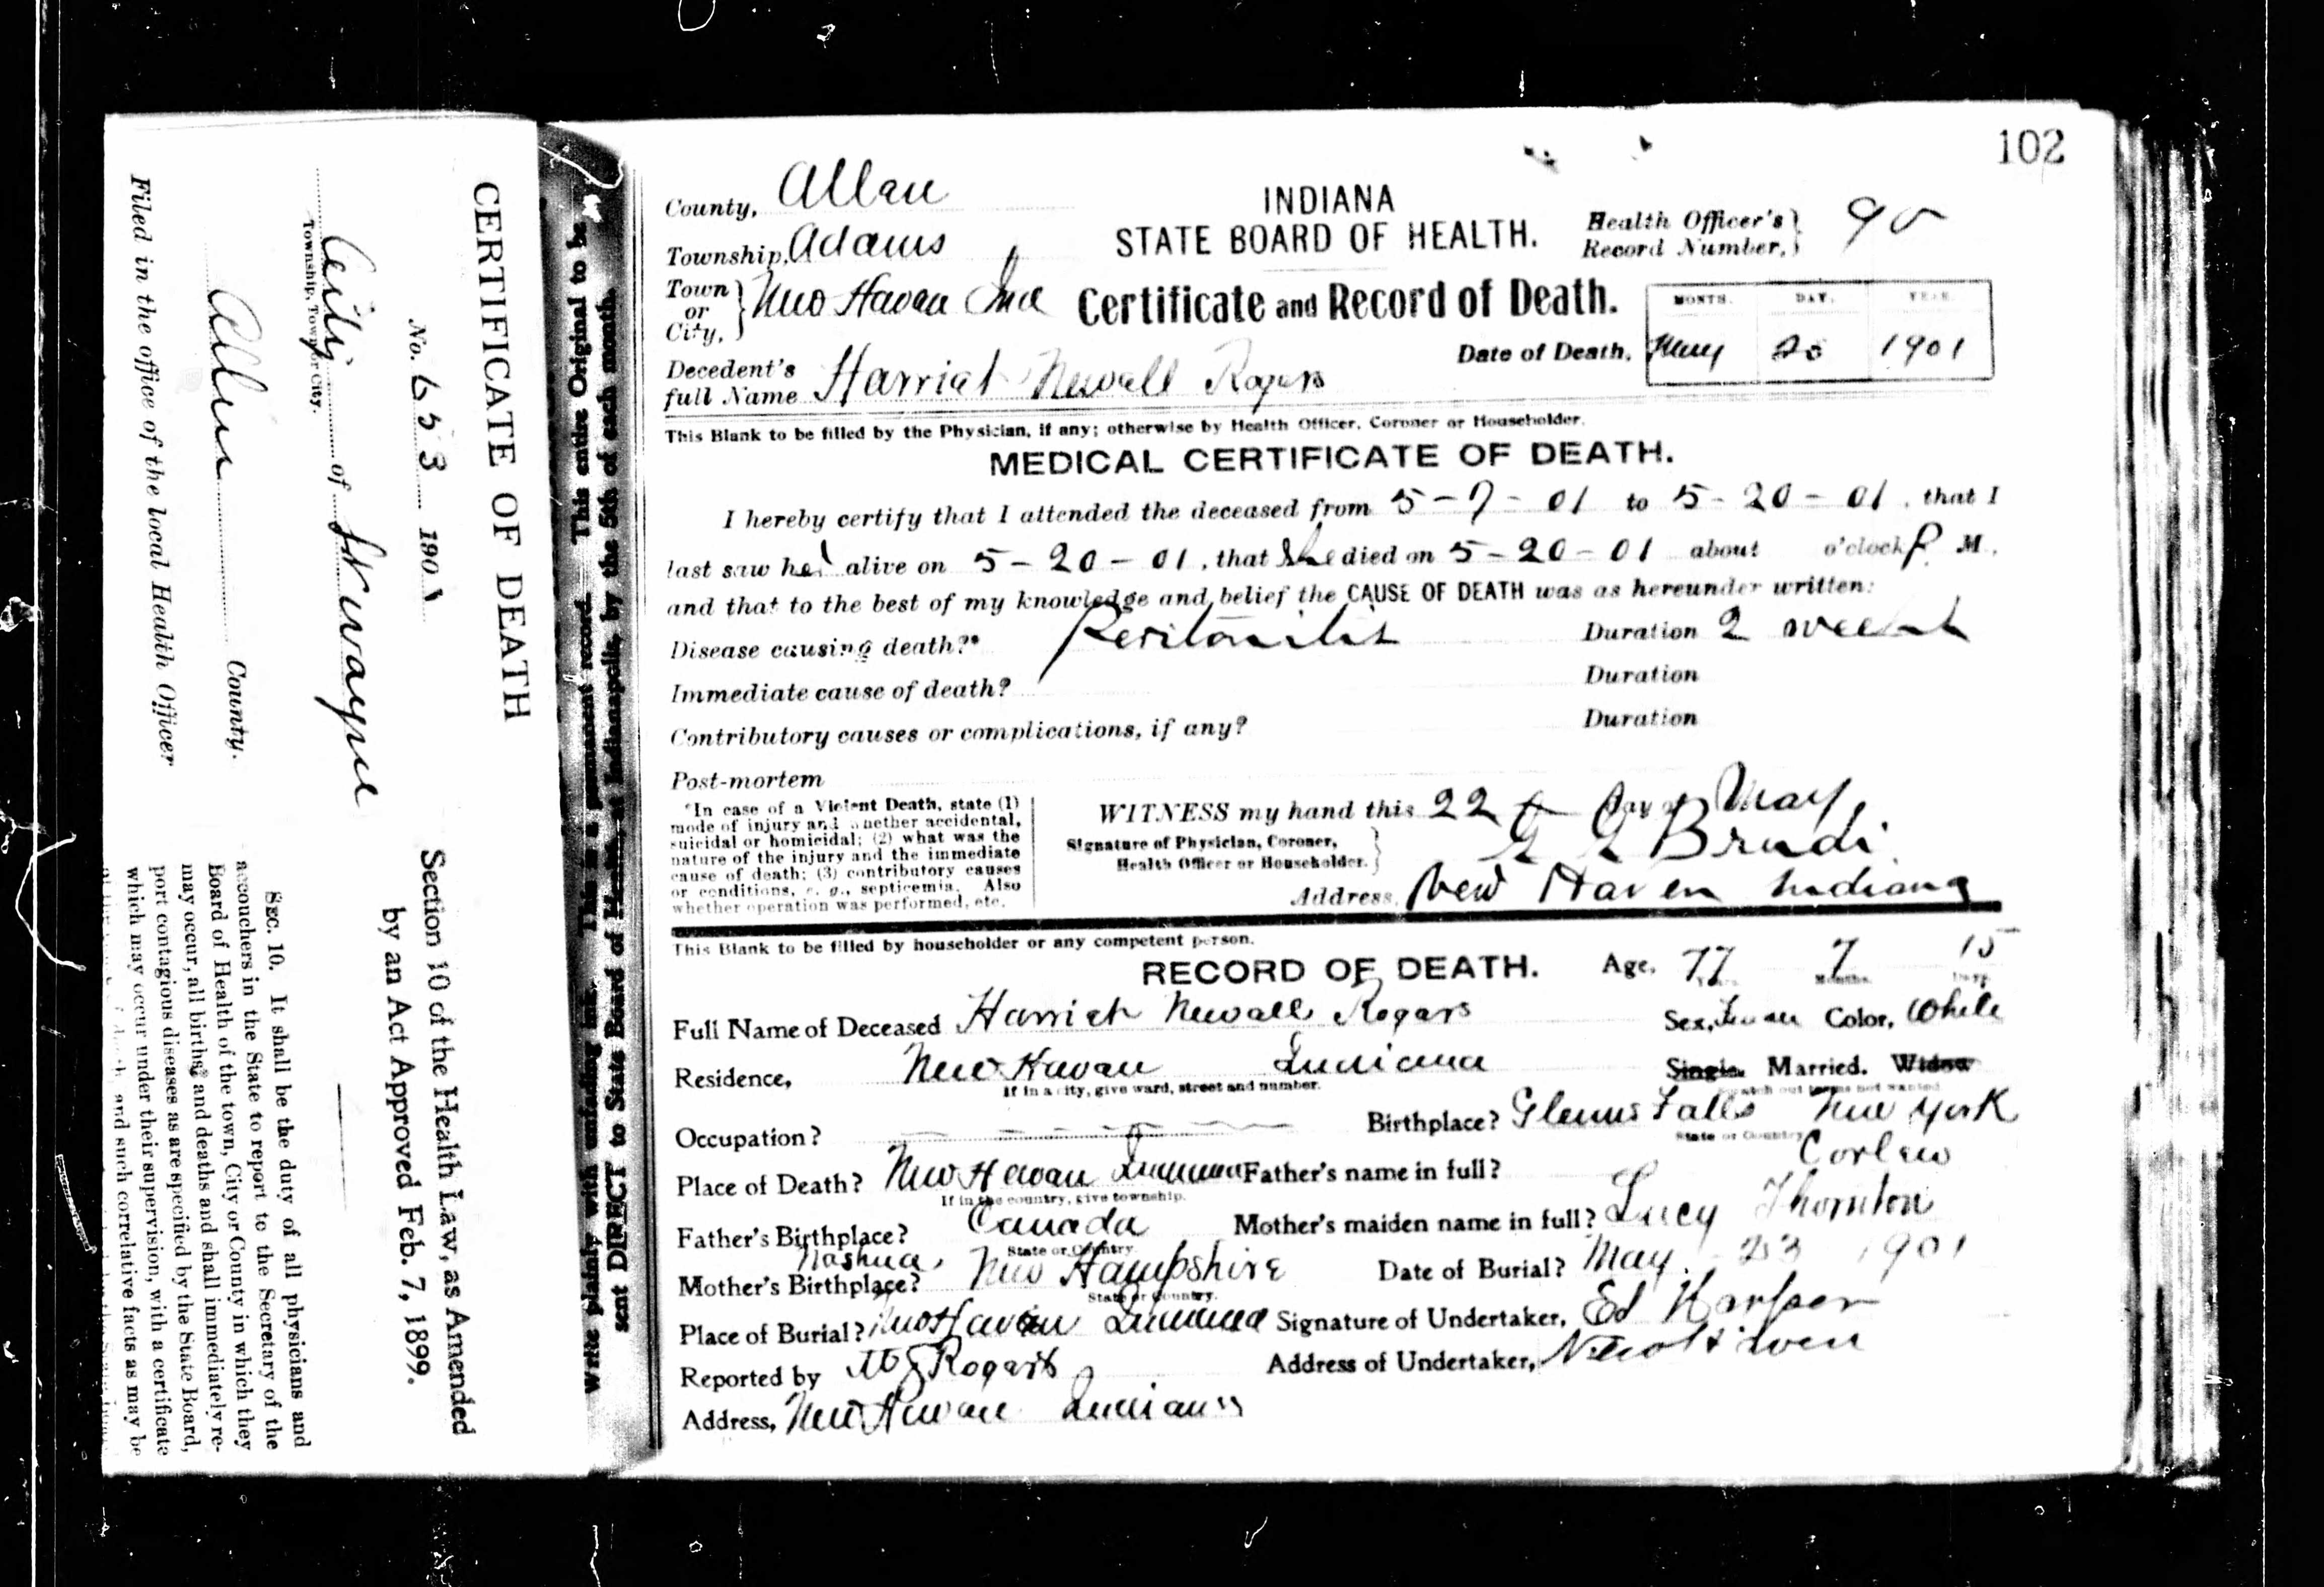 102
County, Allen
INDIANA
STATE BOARD OF HEALTH.
Health Officer's
Record Number,
Township, Adams
Town or City, New Haven Ind
Certificate and Record of Death.
MONTH. DAY. YEAR.
Date of Death, May 20 1901
Decedent's full Name Harriet Newell Rogers
This Blank to be filled by the Physician, if any; otherwise by Health Officer, Coroner or Householder.
MEDICAL CERTIFICATE OF DEATH.
I hereby certify that I attended the deceased from 5-7-01 to 5-20-01, that I
last saw her alive on 5-20-01, that She died on 5-20-01 about o'clock P. M.,
and that to the best of my knowledge and belief the CAUSE OF DEATH was as hereunder written:
Disease causing death?* Peritonitis Duration 2 weeks
Immediate cause of death? Duration
Contributory causes or complications, if any? Duration
Post-mortem
*In case of a Violent Death, state (1)
mode of injury and whether accidental,
suicidal or homicidal; (2) what was the
nature of the injury and the immediate
cause of death; (3) contributory causes
or conditions, e. g., septicemia. Also
whether operation was performed, etc.
WITNESS my hand this 22 Day of May,
Signature of Physician, Coroner,
Health Officer or Householder. Brudi
Address, New Haven Indiana
This Blank to be filled by householder or any competent person.
RECORD OF DEATH. Age, 77 Years. 7 Months. 15 Days
Full Name of Deceased Harriet Newall Rogars
Sex, Color, White
Residence, New Havan Indiana
If in a city, give ward, street and number.
Single. Married. Widow
Scratch out terms not wanted
Occupation?
Birthplace? Glenns Falls New York
State or Country
Place of Death? New Havan Indiana
If in the country, give township.
Father's name in full? Corlew
Father's Birthplace? Canada
State or Country.
Mother's maiden name in full? Lucy Thornton
Mother's Birthplace? Nashua, New Hampshire
State or Country.
Date of Burial? May 23 1901
Place of Burial? New Havan Indiana
Signature of Undertaker, Ed Harper
Reported by Rogars
Address of Undertaker, New Haven
Address, New Havan Indiana
Write plainly with unfading ink. This is a permanent record. This entire Original to be
sent DIRECT to State Board of Health at Indianapolis, by the 5th of each month.
CERTIFICATE OF DEATH
No. 653 1901
City of Ft Wayne
Township, Town or City.
Allen County.
Filed in the office of the local Health Officer
Section 10 of the Health Law, as Amended
by an Act Approved Feb. 7, 1899.
SEC. 10. It shall be the duty of all physicians and
accouchers in the State to report to the Secretary of the
Board of Health of the town, City or County in which they
may occur, all births, and deaths and shall immediately re-
port contagious diseases as are specified by the State Board,
which may occur under their supervision, with a certificate
and such correlative facts as may be